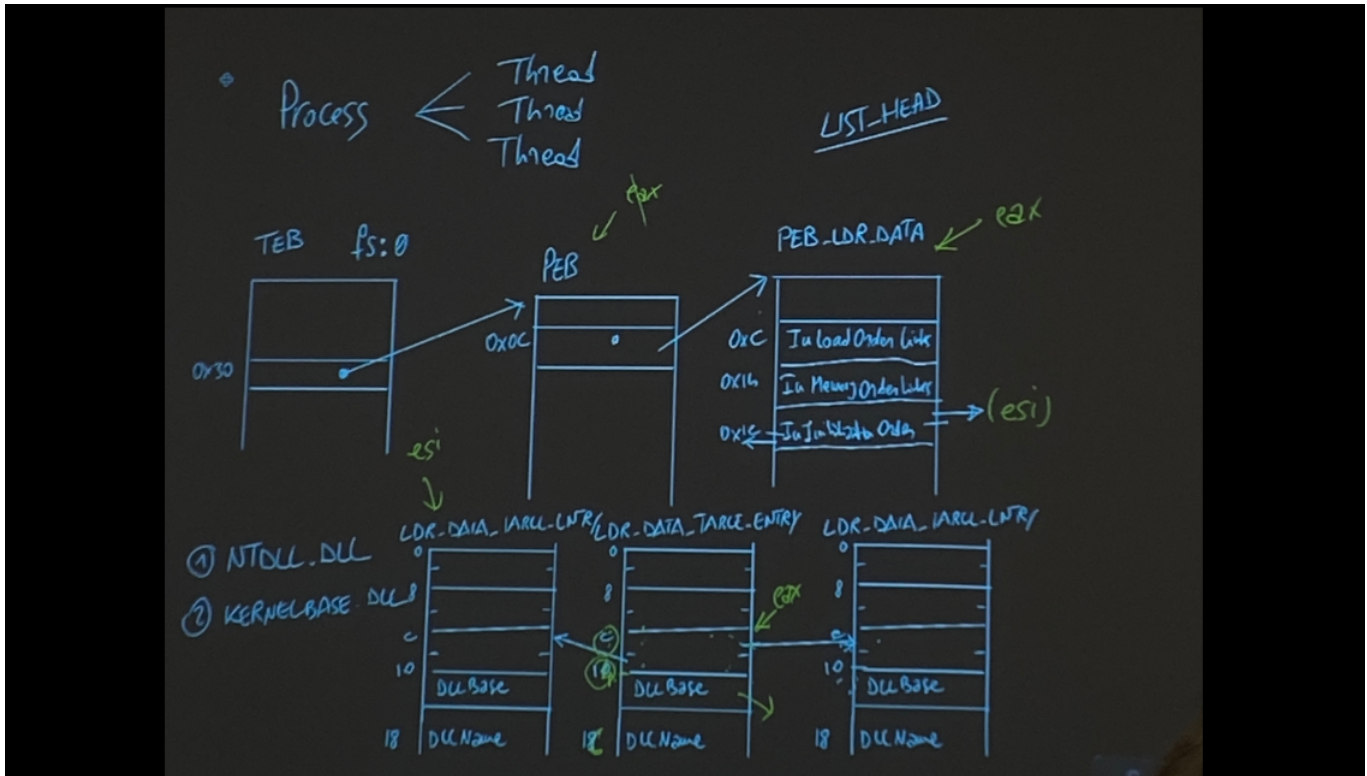 Process
Thread
Thread
Thread
LIST_HEAD
TEB fs:0
0x30
eax
PEB
0x0C
PEB_LDR_DATA
eax
0xC In Load Order Links
0x14 In Memory Order Links
0x1C Order
(esi)
esi
① NTDLL.DLL
② KERNELBASE.DLL
LDR_DATA_TABLE_ENTRY
0
8
c
10
DLLBase
18 DLLName
LDR_DATA_TABLE_ENTRY
0
8
eax
c
10
DLLBase
18 DLLName
LDR_DATA_TABLE_ENTRY
0
8
c
10
DLLBase
18 DLLName